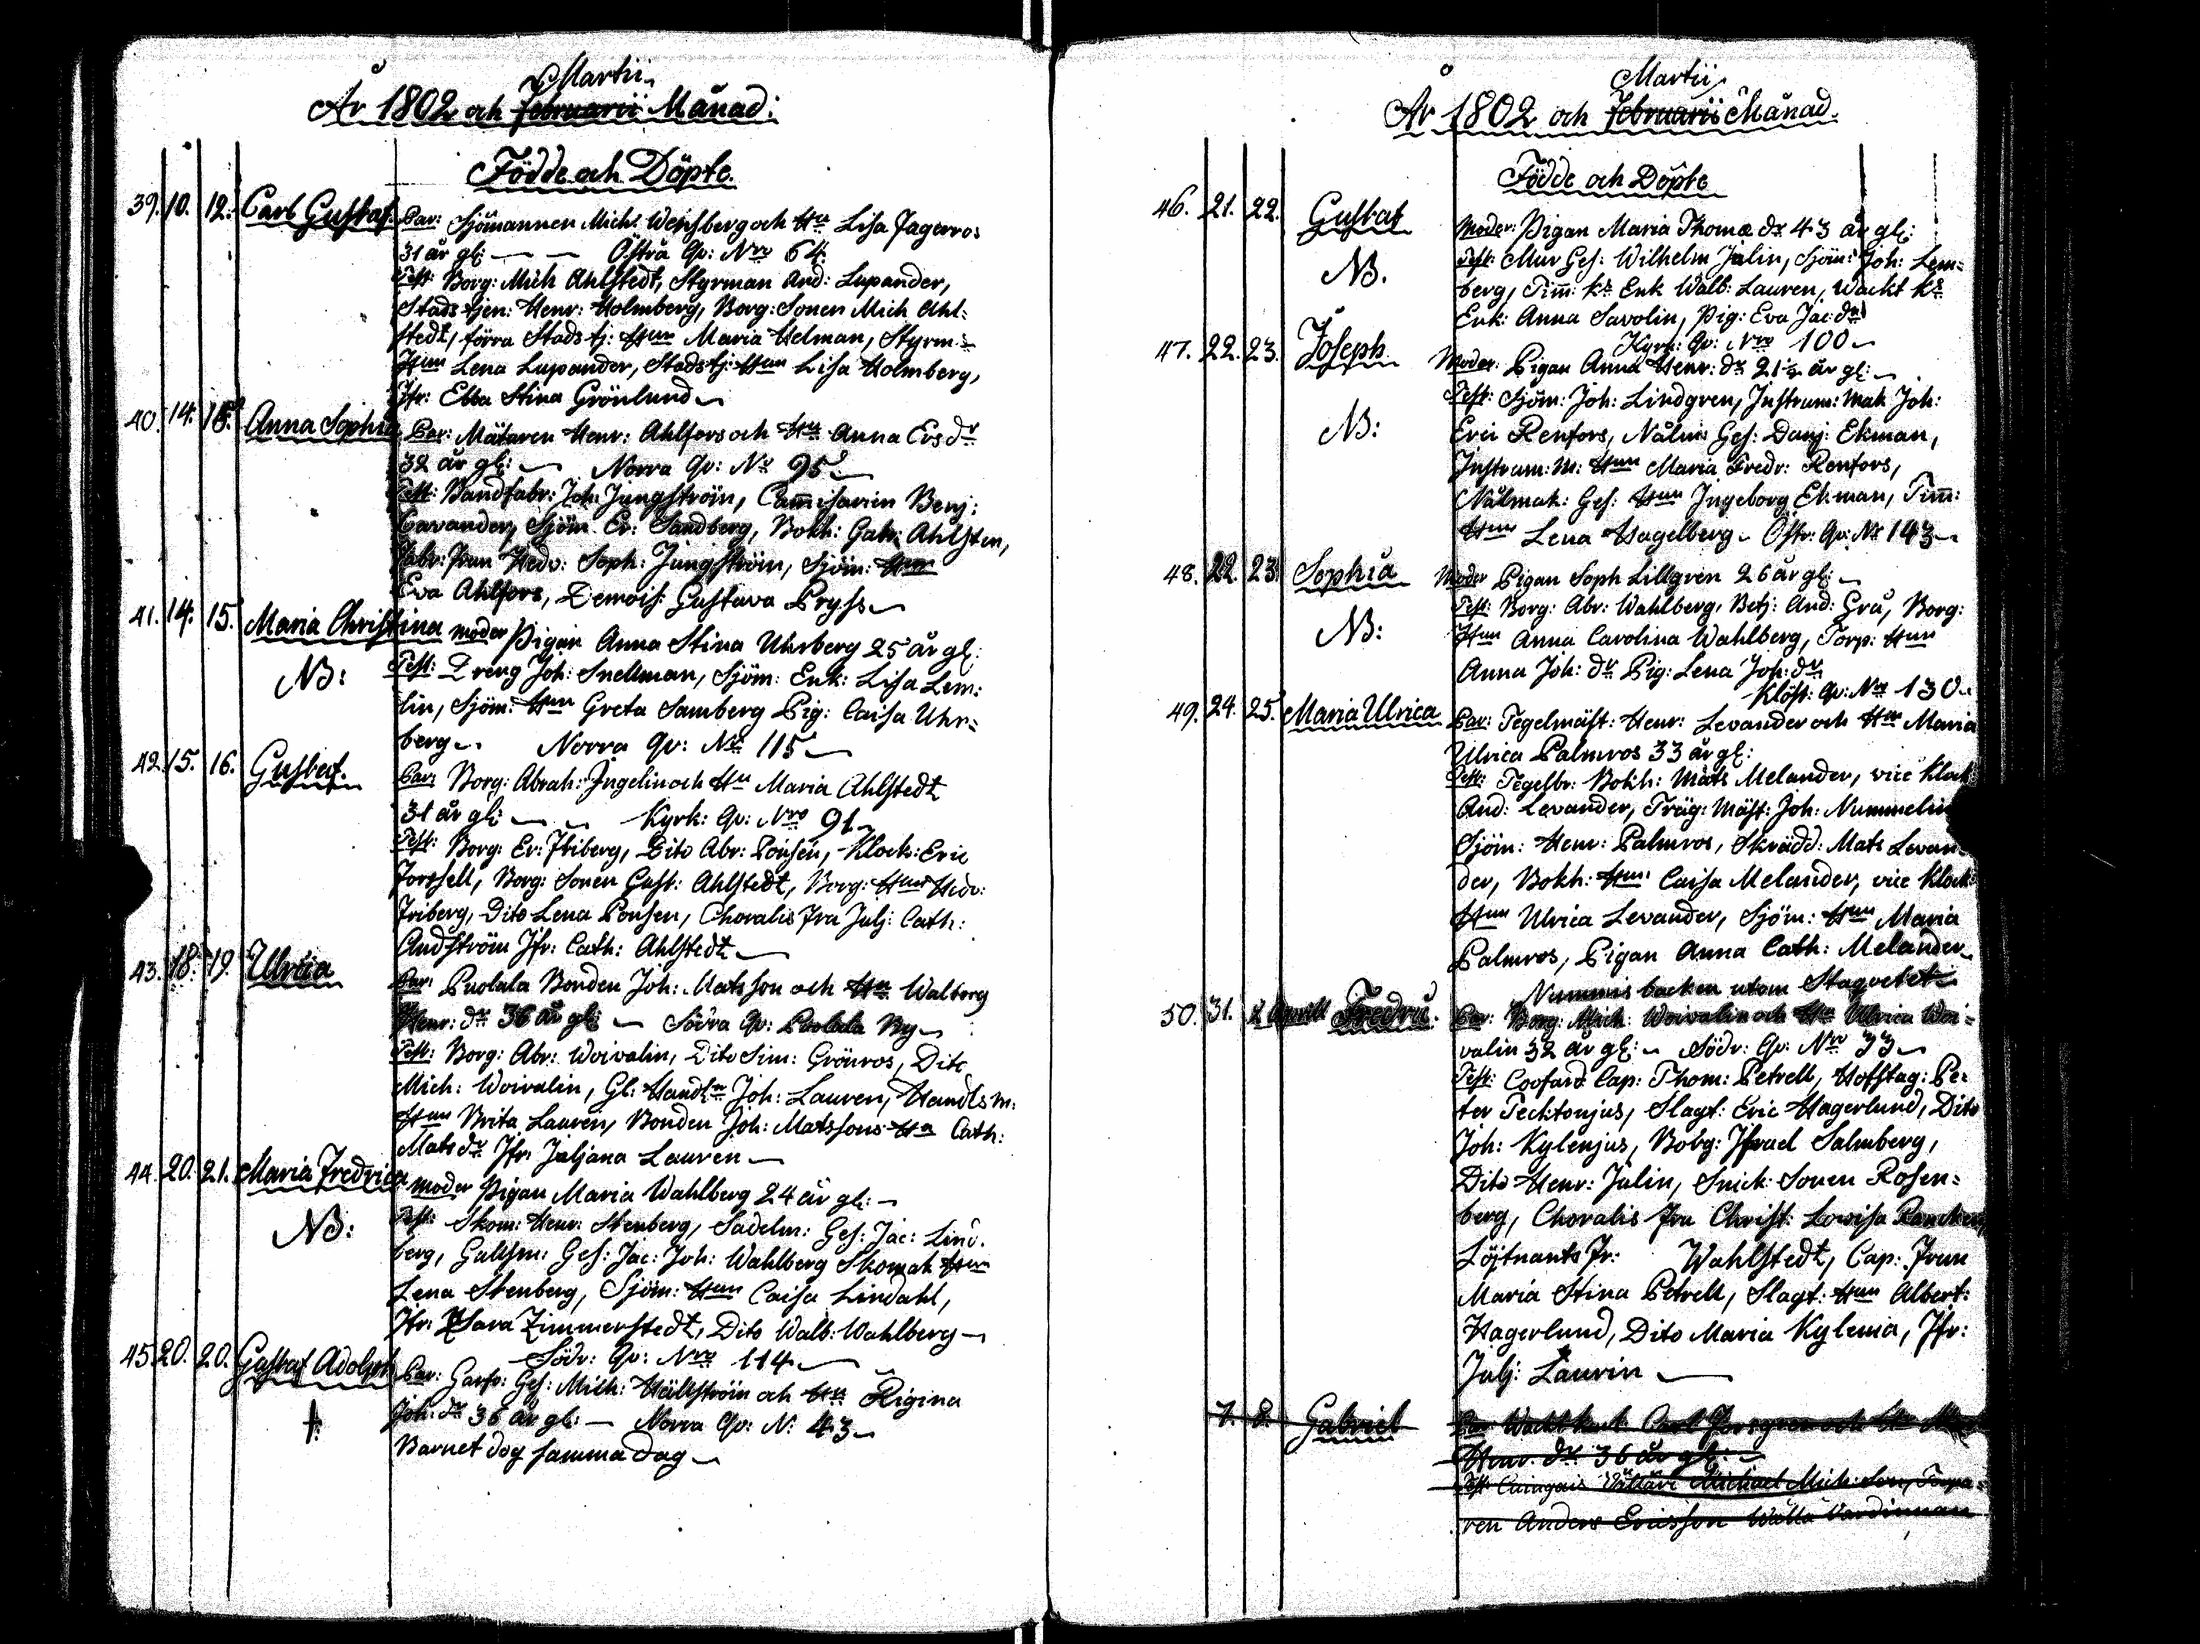 Martii
År 1802 och Februarii Månad:
Födde och Döpte.
39. 10. 12. Carl Gustaf. Par: Sjömannen Mich: Weisberg och Hu Lisa Fagerros
31 år gl: Östra Qv: Nro 64.
Test: Borg: Mich Ahlstedt, Styrman And: Lupander,
Stads tjen: Henr: Holmberg, Borg: Sonen Mich Ahl:
stedt, förra Stads tj: Hun Maria Helman, Styrm:
Hun Lena Lupander, Stads tj: Hun Lisa Holmberg,
Jfr: Ebba Stina Grönlund
40. 14. 18. Anna Sophia Par: Mätaren Henr: Ahlfors och Hu Anna Ers dr
32 år gl: Norra Qv: No 95
Test: Bandfabr: Joh: Jungström, Commissarien Benj:
Cavander, Sjöm Er: Sandberg, Bokh: Gabr: Ahlsten,
Fabr: frun Hedv: Soph: Jungström, Sjöm: Hun
Eva Ahlfors, Demois: Gustava Pryss
41. 14. 15. Maria Christina moder Pigan Anna Stina Uhrberg 25 år gl:
NB: Test: Dreng Joh: Snellman, Sjöm: Enk: Lisa Lem:
lin, Sjöm: Hun Greta Samberg Pig: Caisa Uhr=
berg Norra Qv: No 115
42. 15. 16. Gustaf. Par: Borg: Abrah: Ingelin och Hu Maria Ahlstedt
31 år gl: Kyrk: Qv: Nro 91
Test: Borg: Er: Friberg, Dito Abr: Ponsen, Klock: Eric
Forssell, Borg: Sonen Gust: Ahlstedt, Borg: Hun Hedv:
Friberg, Dito Lena Ponsen, Choralis Fru Julj: Cath:
Andström Jfr: Cath: Ahlstedt
43. 18. 19. Ulrica Par: Puolala Bonden Joh: Matsson och Hu Walborg
Henr: dr 36 år gl: Södra Qv: Puolala By
Test: Borg: Abr: Woivalin, Dito Sim: Grönros, Dito
Mich: Woivalin, Gl: Handln Joh: Lauren, Handlsm:
Hun Brita Lauren, Bonden Joh: Matssons Hu Cath:
Mats dr Jfr: Juljana Lauren
44. 20. 21. Maria Fredrica moder Pigan Maria Wahlberg 24 år gl:
NB: Test: Skom: Henr: Stenberg, Sadelm: Ges: Jac: Lind.
berg, Gulsm: Ges: Jac: Joh: Wahlberg Skomak Hun
Lena Stenberg, Sjöm: Hun Caisa Lindahl,
Jfr: Sara Zimmerstedt, Dito Walb: Wahlberg
Södr: Qv: Nro 114
45. 20. 20. Gustaf Adolph Par: Garfv: Ges: Mich: Hällström och Hu Rigina
Joh: dr 36 år gl: Norra Qv: N: 43
Barnet dog samma dag
Martii
År 1802 och Februarii Månad.
Födde och Döpte
46. 21. 22. Gustaf Moder: Pigan Maria Thomæ dr 43 år gl:
NB. Test: Mur Ges: Wilhelm Julin, Sjöm: Joh: Lem=
berg, Tim: ks Enk Walb: Lauren, Wackt ks
Enk: Anna Savolin, Pig: Eva Jac: dr
Kyrk: Qv: Nro 100
47. 22. 23. Joseph Moder: Pigan Anna Henr: dr 21½ år gl:
NB: Test: Sjöm: Joh: Lindgren, Instrum: Mak Joh:
Erici Renfors, Nålm: Ges: Danj: Ekman,
Instrum: M: Hun Maria Fredr: Renfors,
Nålmak: Ges: Hun Ingeborg Ekman, Tim:
Hun Lena Hagelberg Östr: Qv: Nr 143
48. 22. 23. Sophia Moder Pigan Soph Lillgren 26 år gl:
NB: Test: Borg: Abr: Wahlberg, Betj: And: Grå, Borg:
Hun Anna Carolina Wahlberg, Torp: Hun
Anna Joh: dr Pig: Lena Joh: dr
Klöst: Qv: Nro 130
49. 24. 25. Maria Ulrica Par: Tegelmäst: Henr: Levander och Hu Maria
Ulrica Palmros 33 år gl:
Test: Tegelbr: Bokh: Mats Melander, vice Klock:
And: Levander, Träg: Mäst: Joh: Nummelin
Sjöm: Henr: Palmros, Skrädd: Mats Levan=
der, Bokh: Hun Caisa Melander, vice Klock:
Hun Ulrica Levander, Sjöm: Hun Maria
Palmros, Pigan Anna Cath: Melander
Nummis backen utom Staqvetet
50. 31. Aprill Fredric. Par: Borg: Mich: Woivalin och Hu Ulrica Woi=
valin 32 år gl: Södr: Qv: Nro 33
Test: Coofard Cap: Thom: Petrell, Hofslag: Pe=
ter Tecktonjus, Slagt: Eric Hagerlund, Dito
Joh: Kylenjus, Borg: Israel Salmberg,
Dito Henr: Julin, Snick: Sonen Rosen=
berg, Choralis Fru Christ: Lowisa
Löjtnants Fr: Wahlstedt, Cap: Frun
Maria Stina Petrell, Slagt: Hun Albert:
Hagerlund, Dito Maria Kylenia, Jfr:
Julj: Laurin
7. 8. Gabriel Par: Wachtkarl Carl och Hu
Henr: dr 36 år gl:
Test: Michael Mich: Son, Torpa=
ren Anders Ericsson